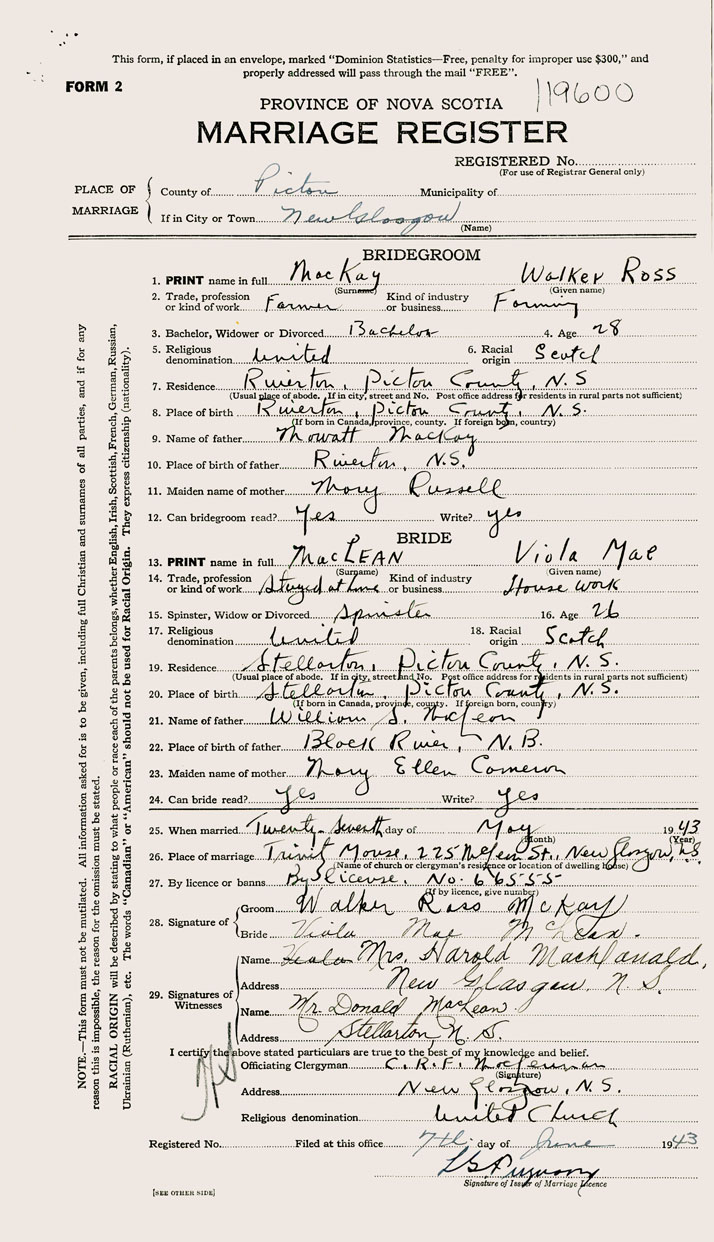 This form, if placed in an envelope, marked "Dominion Statistics—Free, penalty for improper use $300," and
properly addressed will pass through the mail "FREE".
FORM 2
119600
PROVINCE OF NOVA SCOTIA
MARRIAGE REGISTER
REGISTERED No.
(For use of Registrar General only)
PLACE OF MARRIAGE
County of Pictou Municipality of
If in City or Town New Glasgow
(Name)
BRIDEGROOM
1. PRINT name in full MacKay Walker Ross
(Surname) (Given name)
2. Trade, profession or kind of work Farmer Kind of industry or business Farming
3. Bachelor, Widower or Divorced Bachelor 4. Age 28
5. Religious denomination United 6. Racial origin Scotch
7. Residence Riverton, Pictou County, N.S
(Usual place of abode. If in city, street and No. Post office address for residents in rural parts not sufficient)
8. Place of birth Riverton, Pictou County, N.S.
(If born in Canada, province, county. If foreign born, country)
9. Name of father Mowatt MacKay
10. Place of birth of father Riverton, N.S.
11. Maiden name of mother Mary Russell
12. Can bridegroom read? Yes Write? yes
BRIDE
13. PRINT name in full MacLEAN Viola Mae
(Surname) (Given name)
14. Trade, profession or kind of work Stayed at home Kind of industry or business House work
15. Spinster, Widow or Divorced Spinster 16. Age 26
17. Religious denomination United 18. Racial origin Scotch
19. Residence Stellarton, Pictou County, N.S.
(Usual place of abode. If in city, street and No. Post office address for residents in rural parts not sufficient)
20. Place of birth Stellarton, Pictou County, N.S.
(If born in Canada, province, county. If foreign born, country)
21. Name of father William S. McLean
22. Place of birth of father Black River, N.B.
23. Maiden name of mother Mary Ellen Cameron
24. Can bride read? Yes Write? Yes
25. When married Twenty-seventh day of May 1943
(Month) (Year)
26. Place of marriage Trinity Manse, 225 McLean St., New Glasgow, N.S
(Name of church or clergyman's residence or location of dwelling house)
27. By licence or banns By license. No. 66555
(If by licence, give number)
28. Signature of
Groom Walker Ross McKay
Bride Viola Mae McLean.
29. Signatures of Witnesses
Name Viola Mrs. Harold MacDonald,
Address New Glasgow, N.S.
Name Mr. Donald MacLean
Address Stellarton, N.S.
I certify the above stated particulars are true to the best of my knowledge and belief.
Officiating Clergyman C. R. F.
(Signature)
Address New Glasgow, N.S.
Religious denomination United Church
Registered No. Filed at this office 7th day of June 1943
Signature of Issuer of Marriage Licence
[SEE OTHER SIDE]
NOTE.—This form must not be mutilated. All information asked for is to be given, including full Christian and surnames of all parties, and if for any
reason this is impossible, the reason for the omission must be stated.
RACIAL ORIGIN will be described by stating to what people or race each of the parents belongs, whether English, Irish, Scottish, French, German, Russian,
Ukrainian (Ruthenian), etc. The words "Canadian" or "American" should not be used for Racial Origin. They express citizenship (nationality).